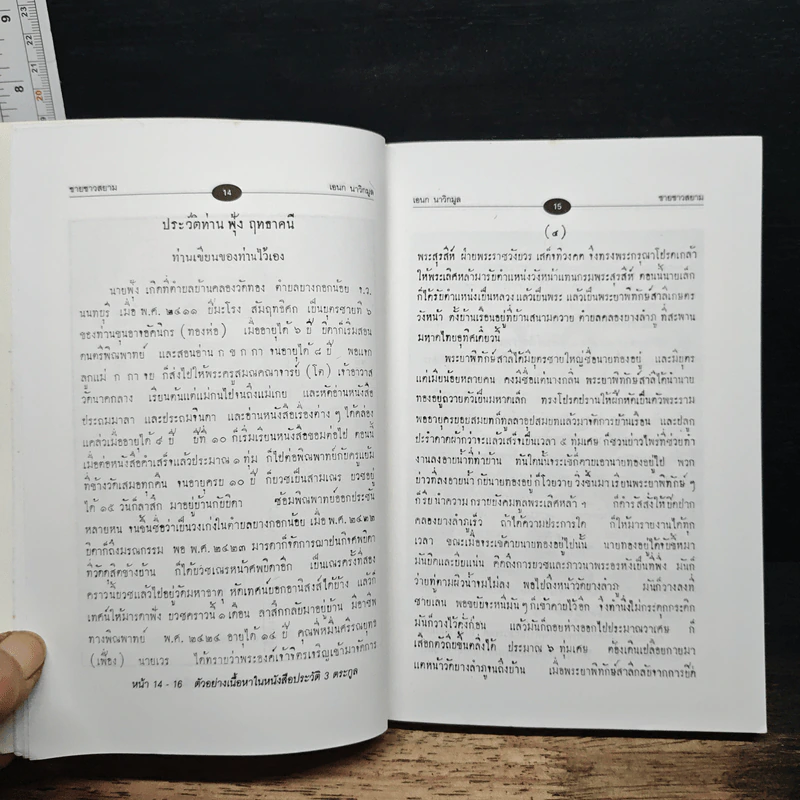 ชายชาวสยาม 14 เอนก นาวิกมูล
ประวัติท่าน ฟุ้ง ฤทธาคนี
ท่านเขียนของท่านไว้เอง
นายฟุ้ง เกิดที่ตำบลบ้านคลองวัดทอง ตำบลบางกอกน้อย จ.ว.
นนทบุรี เมื่อ พ.ศ. ๒๔๑๑ ปีมะโรง สัมฤทธิศก เป็นบุตรชายที่ ๖
ของท่านขุนอาจอัคนิกร (ทองห่อ) เมื่ออายุได้ ๖ ปี บิดาก็เริ่มสอน
ดนตรีพิณพาทย์ และสอนอ่าน ก ข ก กา จนอายุได้ ๘ ปี พอแจก
ลูกแม่ ก กา จบ ก็ส่งไปให้พระครูสมณคณาจารย์ (โต) เจ้าอาวาส
วัดนาคกลาง เรียนต้นแต่แม่กนไปจนถึงแม่เกย และหัดอ่านหนังสือ
ประถมมาลา และประถมจินดา และอ่านหนังสือเรื่องต่าง ๆ ได้คล่อง
แคล่วเมื่ออายุได้ ๘ ปี ปีที่ ๑๐ ก็เริ่มเรียนหนังสือขอมต่อไป ตอนนี้
เมื่อต่อหนังสือค่ำเสร็จแล้วประมาณ ๑ ทุ่ม ก็ไปต่อพิณพาทย์กับครูแย้ม
ที่ข้างวัดเสมอทุกคืน จนอายุครบ ๑๐ ปี ก็บวชเป็นสามเณร บวชอยู่
ได้ ๑๕ วันก็ลาสิก มาอยู่บ้านกับบิดา ซ้อมพิณพาทย์ออกประชัน
หลายหน จนขึ้นชื่อว่าเป็นวงเก่งในตำบลบางกอกน้อย เมื่อ พ.ศ. ๒๔๒๒
บิดาก็ถึงมรณกรรม พอ พ.ศ. ๒๔๒๓ มารดาก็จัดการฌาปนกิจศพบิดา
ที่วัดสุดิข้างบ้าน ก็ได้บวชเณรหน้าศพบิดาอีก เป็นเณรครั้งที่สอง
คราวนี้บวชแล้วไปอยู่วัดมหาธาตุ หัดเทศน์บอกอานิสงส์ได้บ้าง แล้วก็
เทศน์ให้มารดาฟัง บวชคราวนี้ ๑ เดือน ลาสิกกลับมาอยู่บ้าน มีอาชีพ
ทางพิณพาทย์ พ.ศ. ๒๔๒๔ อายุได้ ๑๔ ปี คุณพี่หมื่นศิริรณยุทธ
(เฟื่อง) นายเวร ได้ทราบว่าพระองค์เจ้าจิตรเจริญเข้ามาจัดการ
หน้า 14 - 16 ตัวอย่างเนื้อหาในหนังสือประวัติ 3 ตระกูล
เอนก นาวิกมูล 15 ชายชาวสยาม
พระสุรสีห์ ฝ่ายพระราชวังบวร เสด็จทิวงคต จึงทรงพระกรุณาโปรดเกล้า
ให้พระเลิศหล้ามารับตำแหน่งวังหน้าแทนกรมพระสุรสีห์ ตอนนี้นายเล็ก
ก็ได้รับตำแหน่งเป็นหลวง แล้วเป็นพระ แล้วเป็นพระยาพิทักษ์สาลีเกษตร
วังหน้า ตั้งบ้านเรือนอยู่ที่บ้านสนามควาย ตำบลคลองบางลำภู ที่สะพาน
มหาดไทยอุทิศเดี๋ยวนี้
พระยาพิทักษ์สาลีได้มีบุตรชายใหญ่ชื่อนายทองอยู่ และมีบุตร
แต่เมียน้อยหลายคน คงมีชื่อแต่นางกลิ่น พระยาพิทักษ์สาลีได้นำนาย
ทองอยู่ถวายตัวเป็นมหาดเล็ก ทรงโปรดปรานให้ฝึกหัดเป็นตัวพระราม
พออายุครบอุปสมบทก็ทูลลาอุปสมบทแล้วมาจัดการบ้านเรือน และปลูก
ปะรำดาดผ้ากว่าจะแล้วเสร็จเป็นเวลา ๕ ทุ่มเศษ ก็ชวนบ่าวไพร่ที่ช่วยทำ
งานลงอาบน้ำที่ท่าบ้าน ทันใดนั้นจระเข้ก็คาบเอานายทองอยู่ไป พวก
บ่าวที่ลงอาบน้ำกับนายทองอยู่ก็โวยวาย วิ่งขึ้นมาเรียนพระยาพิทักษ์ ๆ
ก็รีบนำความกราบบังคมทูลพระเลิศหล้า ฯ ก็ดำรัสสั่งให้ปิดปาก
คลองบางลำภูเร็ว ถ้าได้ความประการใด ก็ให้มารายงานได้ทุก
เวลา ขณะเมื่อจระเข้คาบนายทองอยู่ไปนั้น นายทองอยู่ได้จับขี้หมา
มันบิดและบีบแน่น คิดถึงการบวชและภาวนาพระอรหังเป็นที่พึ่ง มันก็
ว่ายที่ตามผิวน้ำจมไม่ลง พอไปถึงหน้าวัดบางลำภู มันก็วางลงที่
ชายเลน พอขยับจะหนีมันๆ ก็เข้าคาบไว้อีก จึงทำนิ่งไม่กระดุกกระดิก
มันก็วางไว้ดั่งก่อน แล้วมันก็ถอยห่างออกไปประมาณวาเศษ ก็
เสือกตัวถีบขึ้นตลิ่งได้ ประมาณ ๖ ทุ่มเศษ ต้องเดินเปลือยกายมา
แต่หน้าวัดบางลำภูจนถึงบ้าน เมื่อพระยาพิทักษ์สาลีกลับจากการปิด